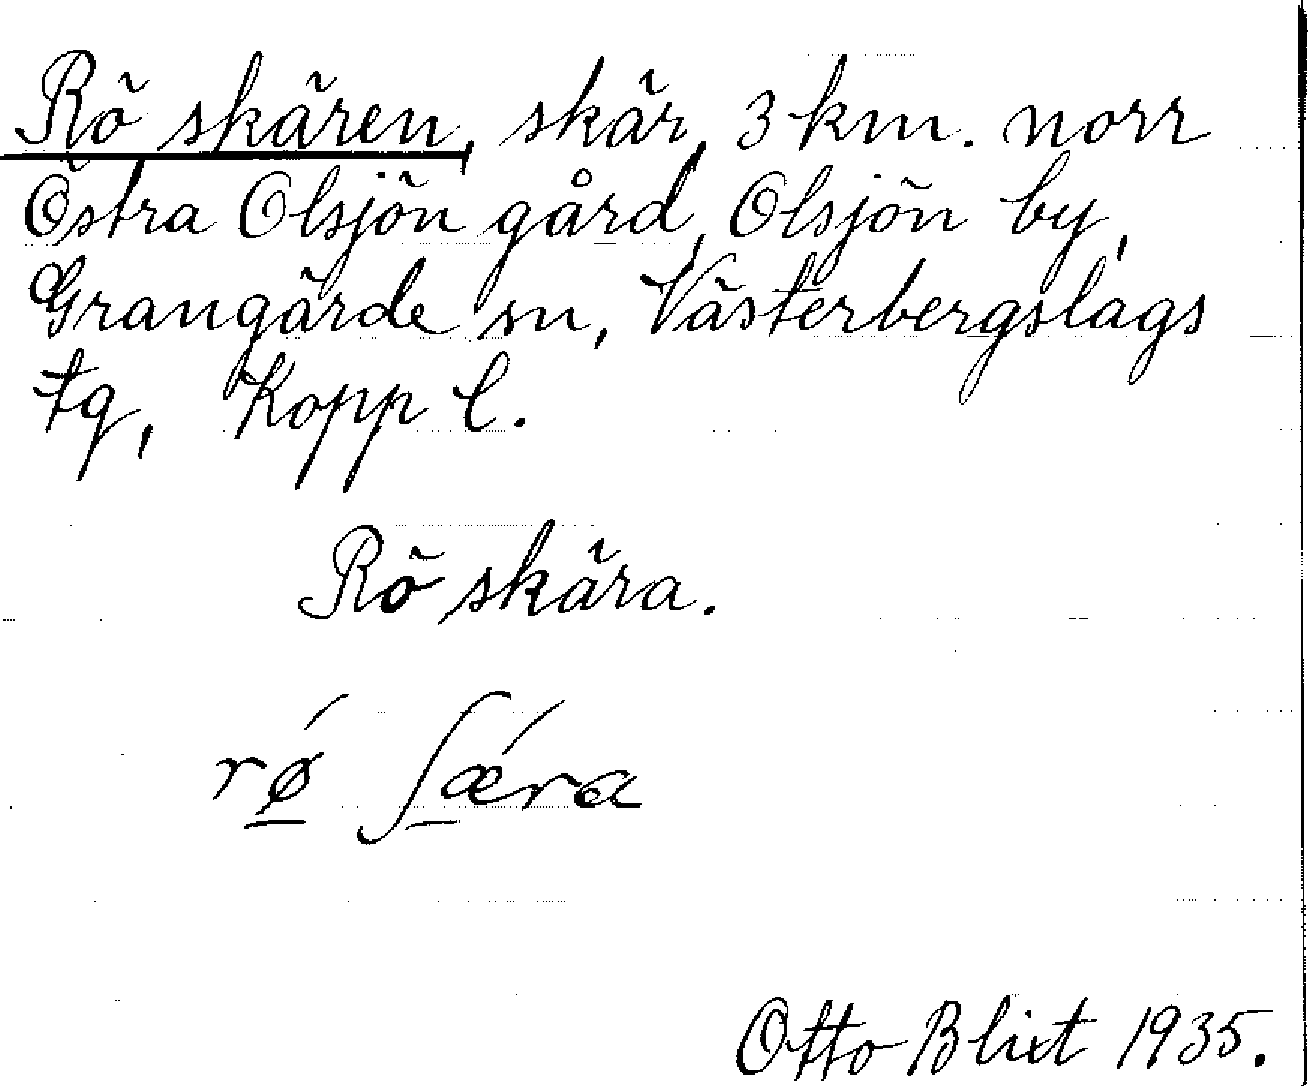 Rö skären, skär, 3 km. norr
Östra Olsjön gård, Olsjön by,
Grangärde sn, Västerbergslags
tg, Kopp l.
Rö skära.
rǿ ʃǽra
Otto Blixt 1935.